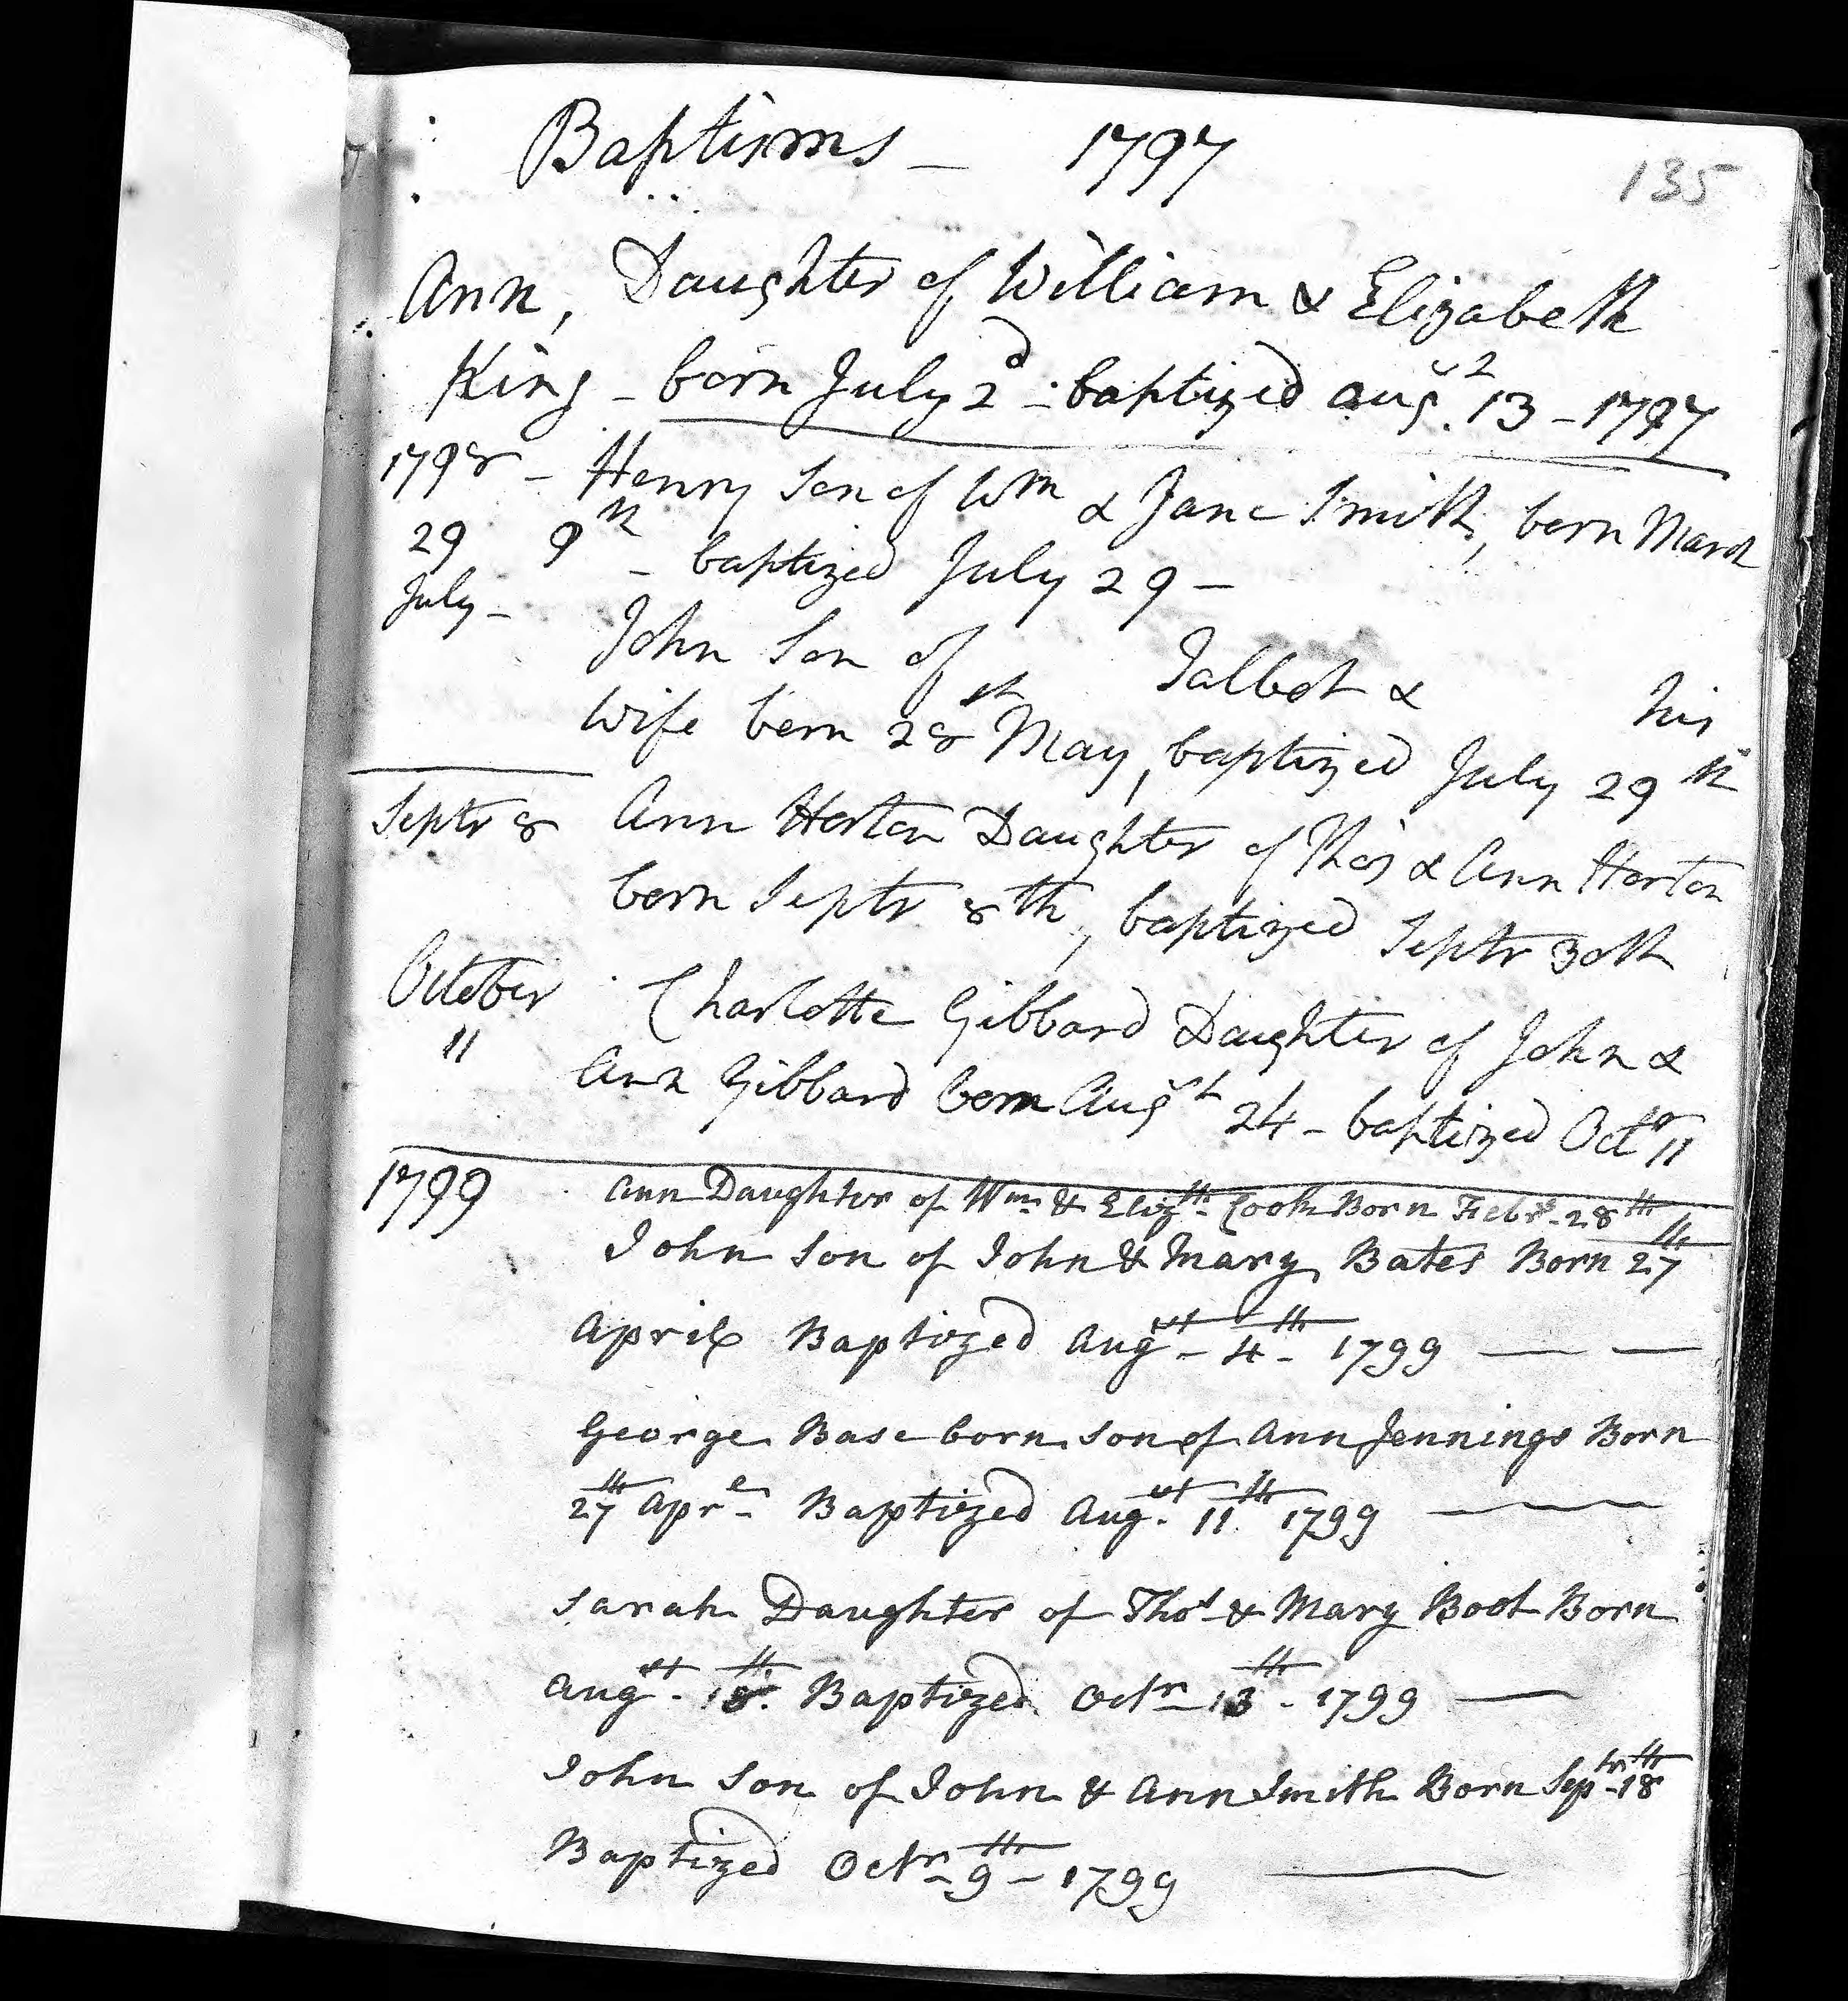 Baptisms - 1797
135
Ann, Daughter of William & Elizabeth
King - born July 2d - baptized Aug. 13 - 1797
1798 - Henry Son of Wm & Jane Smith, born March
29 9th - baptized July 29 -
July -
John Son of Talbot & his
Wife born 28th May, baptized July 29th
Septr 8 Ann Horton Daughter of Thos & Ann Horton
born Septr 8th, baptized Septr 30th
October Charlotte Gibbard Daughter of John &
11 Ann Gibbard born Augst 24 - baptized Octr 11
1799 Ann Daughter of Wm & Elizth Cook Born Febry 28th
John Son of John & Mary Bates Born 27th
April Baptized Augst 4th 1799
George Base born son of Ann Jennings Born
27th Aprl Baptized Augst 11th 1799
Sarah Daughter of Thos & Mary Boot Born
Augst 18th Baptized Octr 13th 1799
John Son of John & Ann Smith Born Septr 18th
Baptized Octr 9th - 1799